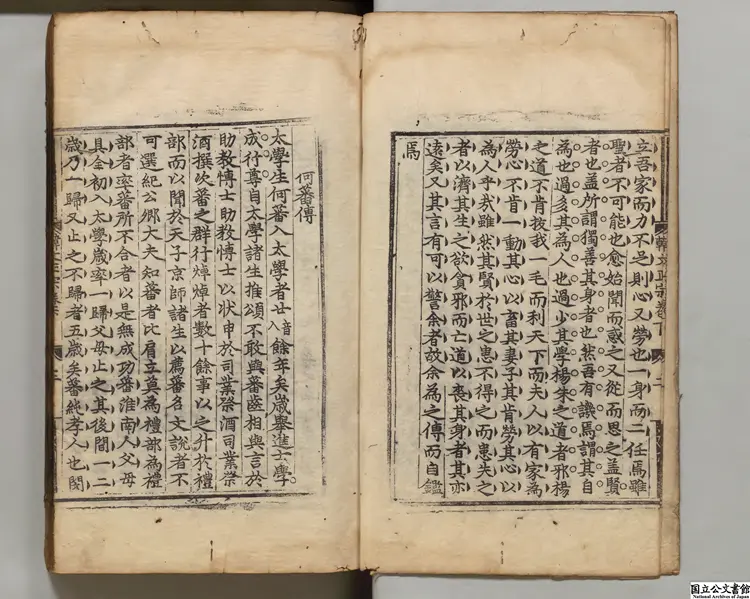 韓文正宗卷下 二
立吾家而力不足則心又勞也一身而二任焉雖
聖者不可能也愈始聞而惑之又從而思之盖賢
者也盖所謂獨善其身者也然吾有譏焉謂其自
為也過多其為人也過少其學楊朱之道者邪楊
之道不肯拔我一毛而利天下而夫人以有家為
勞心不肯一動其心以畜其妻子其肯勞其心以
為人乎哉雖然其賢於世之患不得之而患失之
者以濟其生之欲貪邪而亡道以喪其身者其亦
遠矣又其言有可以警余者故余為之傳而自鑑
焉
何蕃傳
太學生何蕃入太學者廿音入餘年矣歲擧進士學
成行尊自太學諸生推頌不敢與蕃齒相與言於
助敎博士助敎博士以狀申於司業祭酒司業祭
酒撰次蕃之群行焯焯者數十餘事以之升於禮
部而以聞於天子京師諸生以薦蕃名文說者不
可選紀公卿大夫知蕃者比肩立莫為禮部為禮
部者率蕃所不合者以是無成功蕃淮南人父母
具全初入太學歲率一歸父母止之其後間一二
歲乃一歸又止之不歸者五歲矣蕃純孝人也閔
国立公文書館
National Archives of Japan